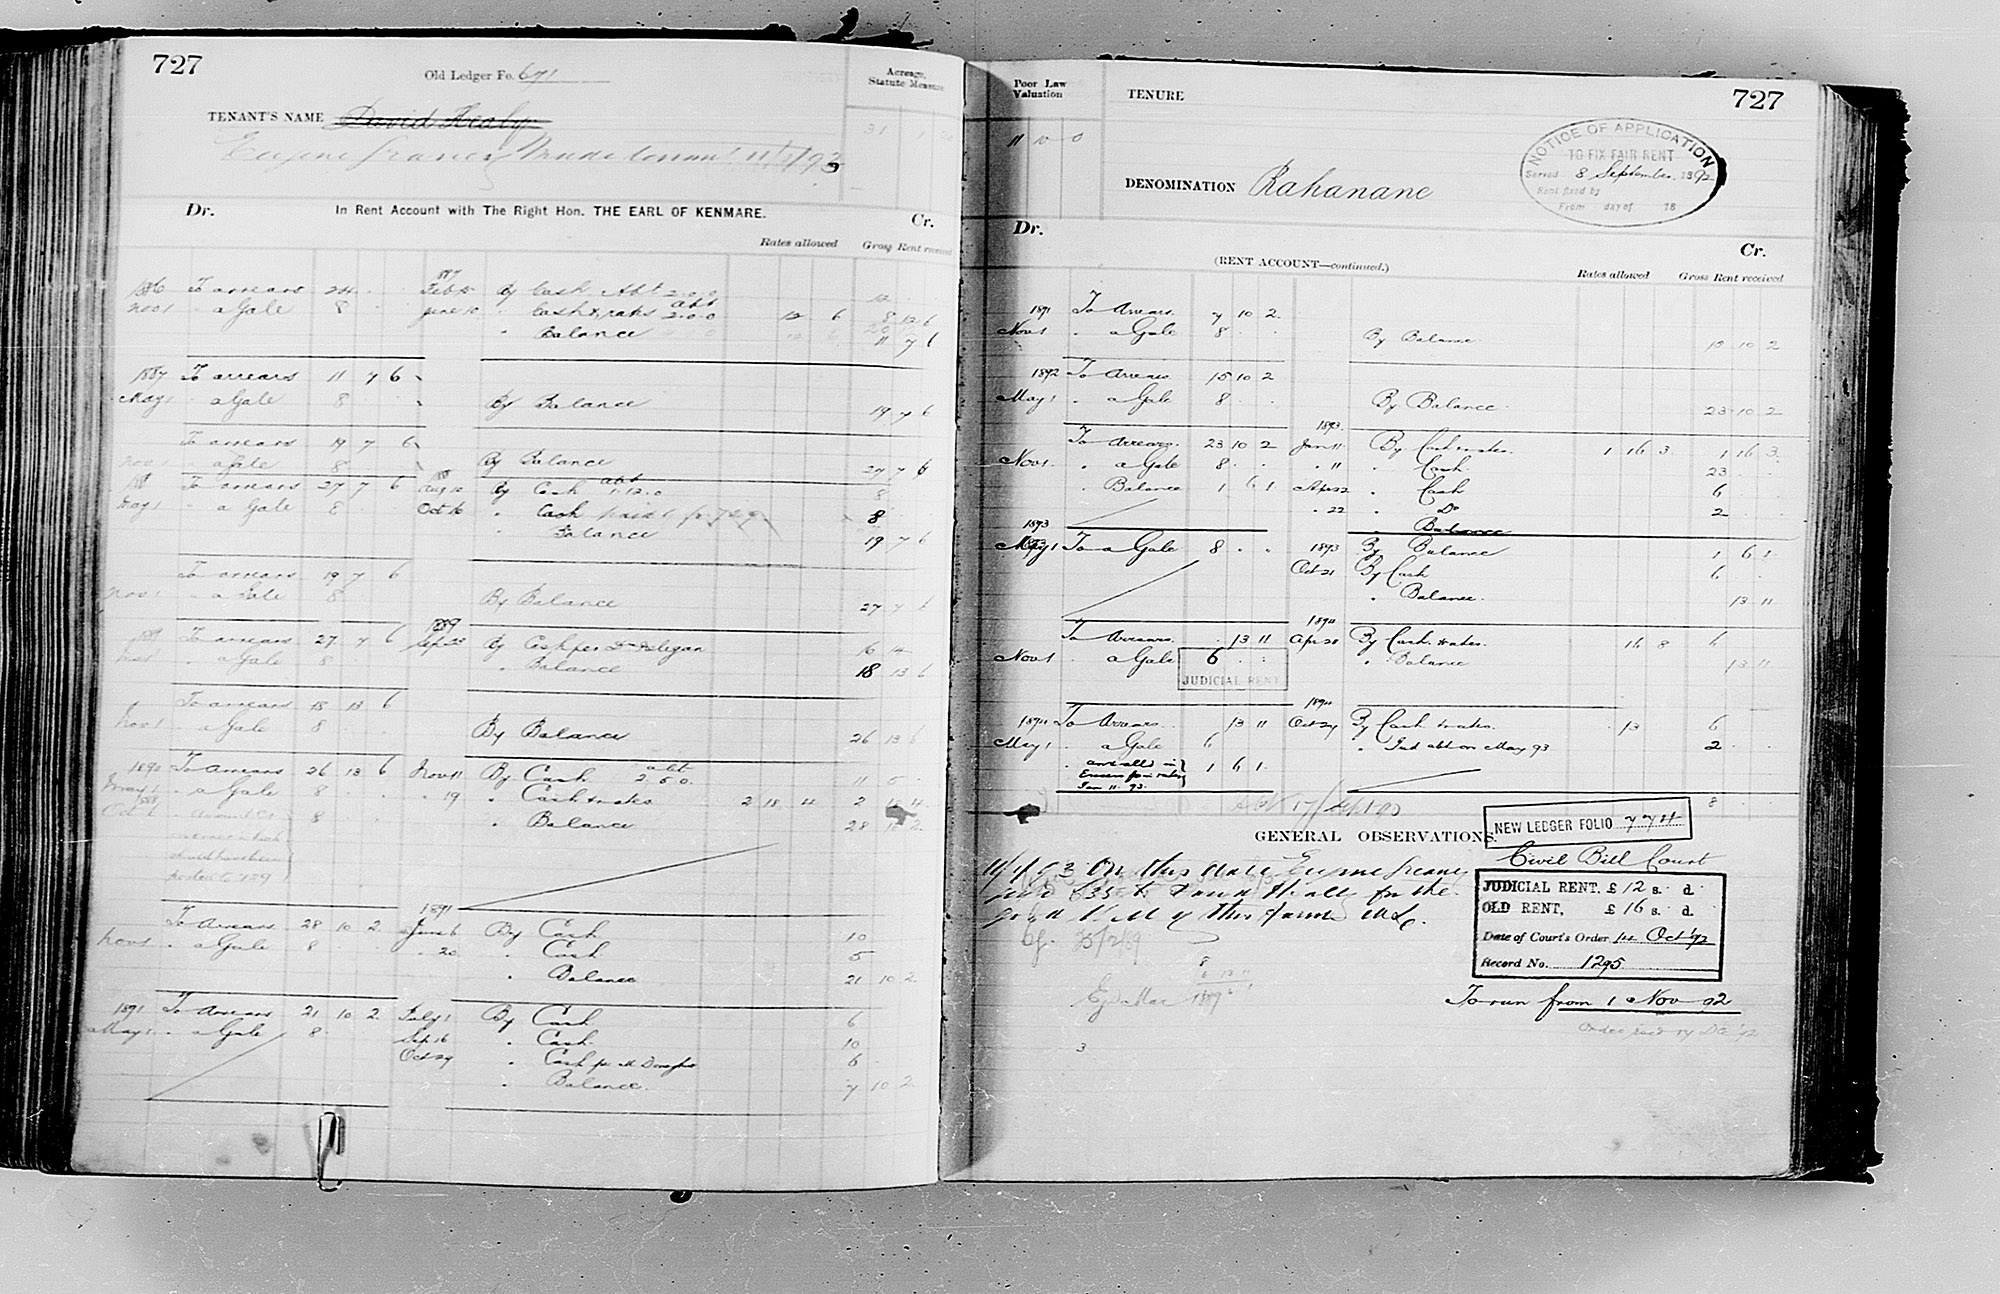 727
Old Ledger Fo. 671
Acreage, Statute Measure
TENANT'S NAME David Healy
Eugene Made tenant 11/1/93
31
Dr. In Rent Account with The Right Hon. THE EARL OF KENMARE. Cr.
Rates allowed Gross Rent received
1886 To arrears 24 1887 Feb 15 By Cash Abt 2.0.0 12
Nov 1 " a Gale 8 June 10 " Cash & rates abt 2.0.0 12 6 8 12 6
" Balance 11 7 6
1887 To arrears 11 7 6
May 1 " a Gale 8 By Balance 19 7 6
To arrears 19 7 6
Nov 1 " a Gale 8 By Balance 27 7 6
188 To arrears 27 7 6 Aug By Cash abt 1.12.0 8
May 1 " a Gale 8 Oct 16 " Cash 8
" Balance 19 7 6
To arrears 19 7 6
Nov 1 " a Gale 8 By Balance 27 7 6
1889 To arrears 27 7 6 1889 Sept 23 By Cash per 16 14
" a Gale 8 " Balance 18 13 6
To arrears 18 13 6
Nov 1 " a Gale 8 By Balance 26 13 6
1890 To Arrears 26 13 6 Nov 11 By Cash abt 2.5.0 11 5
May 1 " a Gale 8 " 19 " Cash & rates 2 18 4 2 18 4
1888 Oct 8 " Balance 28 10 2
1891
To Arrears 28 10 2 Jan 6 By Cash 10
Nov 1 " a Gale 8 " 20 " Cash 5
" Balance 21 10 2
1891 To Arrears 21 10 2 July 1 By Cash 6
May 1 " a Gale 8 Sep 16 " Cash 10
Oct 29 " Cash 6
" Balance 7 10 2
Poor Law Valuation
TENURE
727
11 10 0
NOTICE OF APPLICATION
TO FIX FAIR RENT
Served 8 September 1892
Rent fixed by
From day of 18
DENOMINATION Rahanane
Dr.
Cr.
(RENT ACCOUNT—continued.)
Rates allowed Gross Rent received
1891 To Arrears 7 10 2
Nov 1 " a Gale 8 By Balance 15 10 2
1892 To Arrears 15 10 2
May 1 " a Gale 8 By Balance 23 10 2
1893
To Arrears 23 10 2 Jan 11 By Cash & rates 1 16 3 1 16 3
Nov 1 " a Gale 8 " 11 " Cash 23
" Balance 1 6 1 Apr 22 " Cash 6
" 22 " Do 2
" Balance
1893
May 1 To a Gale 8 1893 By Balance 1 6 1
Oct 21 By Cash 6
" Balance 13 11
1894
To Arrears 13 11 Apr 28 By Cash & rates 16 8 6
Nov 1 " a Gale 6 " Balance 13 11
JUDICIAL RENT
1894
1894 To Arrears 13 11 Oct 29 By Cash & rates 13 6
May 1 " a Gale 6 " Jud abt on May 93 2
" amt alld in Error for rates Jan 11. 93. 1 6 1
8
GENERAL OBSERVATIONS.
NEW LEDGER FOLIO 774
11/1/93 On this date Eugene
paid £35 to David Healy for the
good will of this farm
Civil Bill Court
JUDICIAL RENT. £12 s. d.
OLD RENT, £16 s. d.
Date of Court's Order 14 Oct '92
Record No. 1295
To run from 1 Nov 92
3